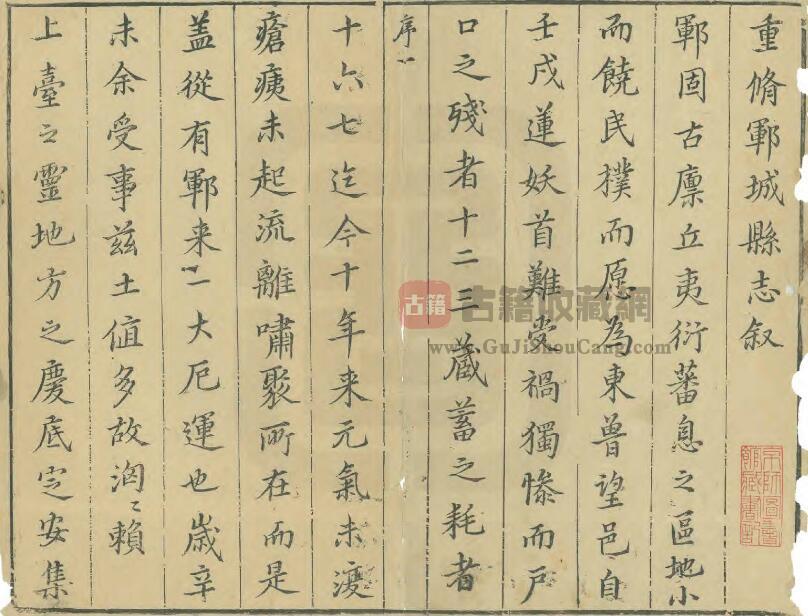 重脩鄆城縣志叙
鄆固古廪丘夷衍蕃息之區地小
而饒民樸而愿為東魯望邑自
壬戌蓮妖首難受禍獨慘而戶
口之殘者十二三蔵蓄之耗者
序一
十六七迄今十年来元氣未復
瘡痍未起流離嘯聚所在而是
盖從有鄆来一大厄運也嵗辛
未余受事兹土值多故洶〻賴
上臺之靈地方之慶底定安集
京師圖書
館藏書記
古籍
古籍收藏網
www.GuJiShouCang.com